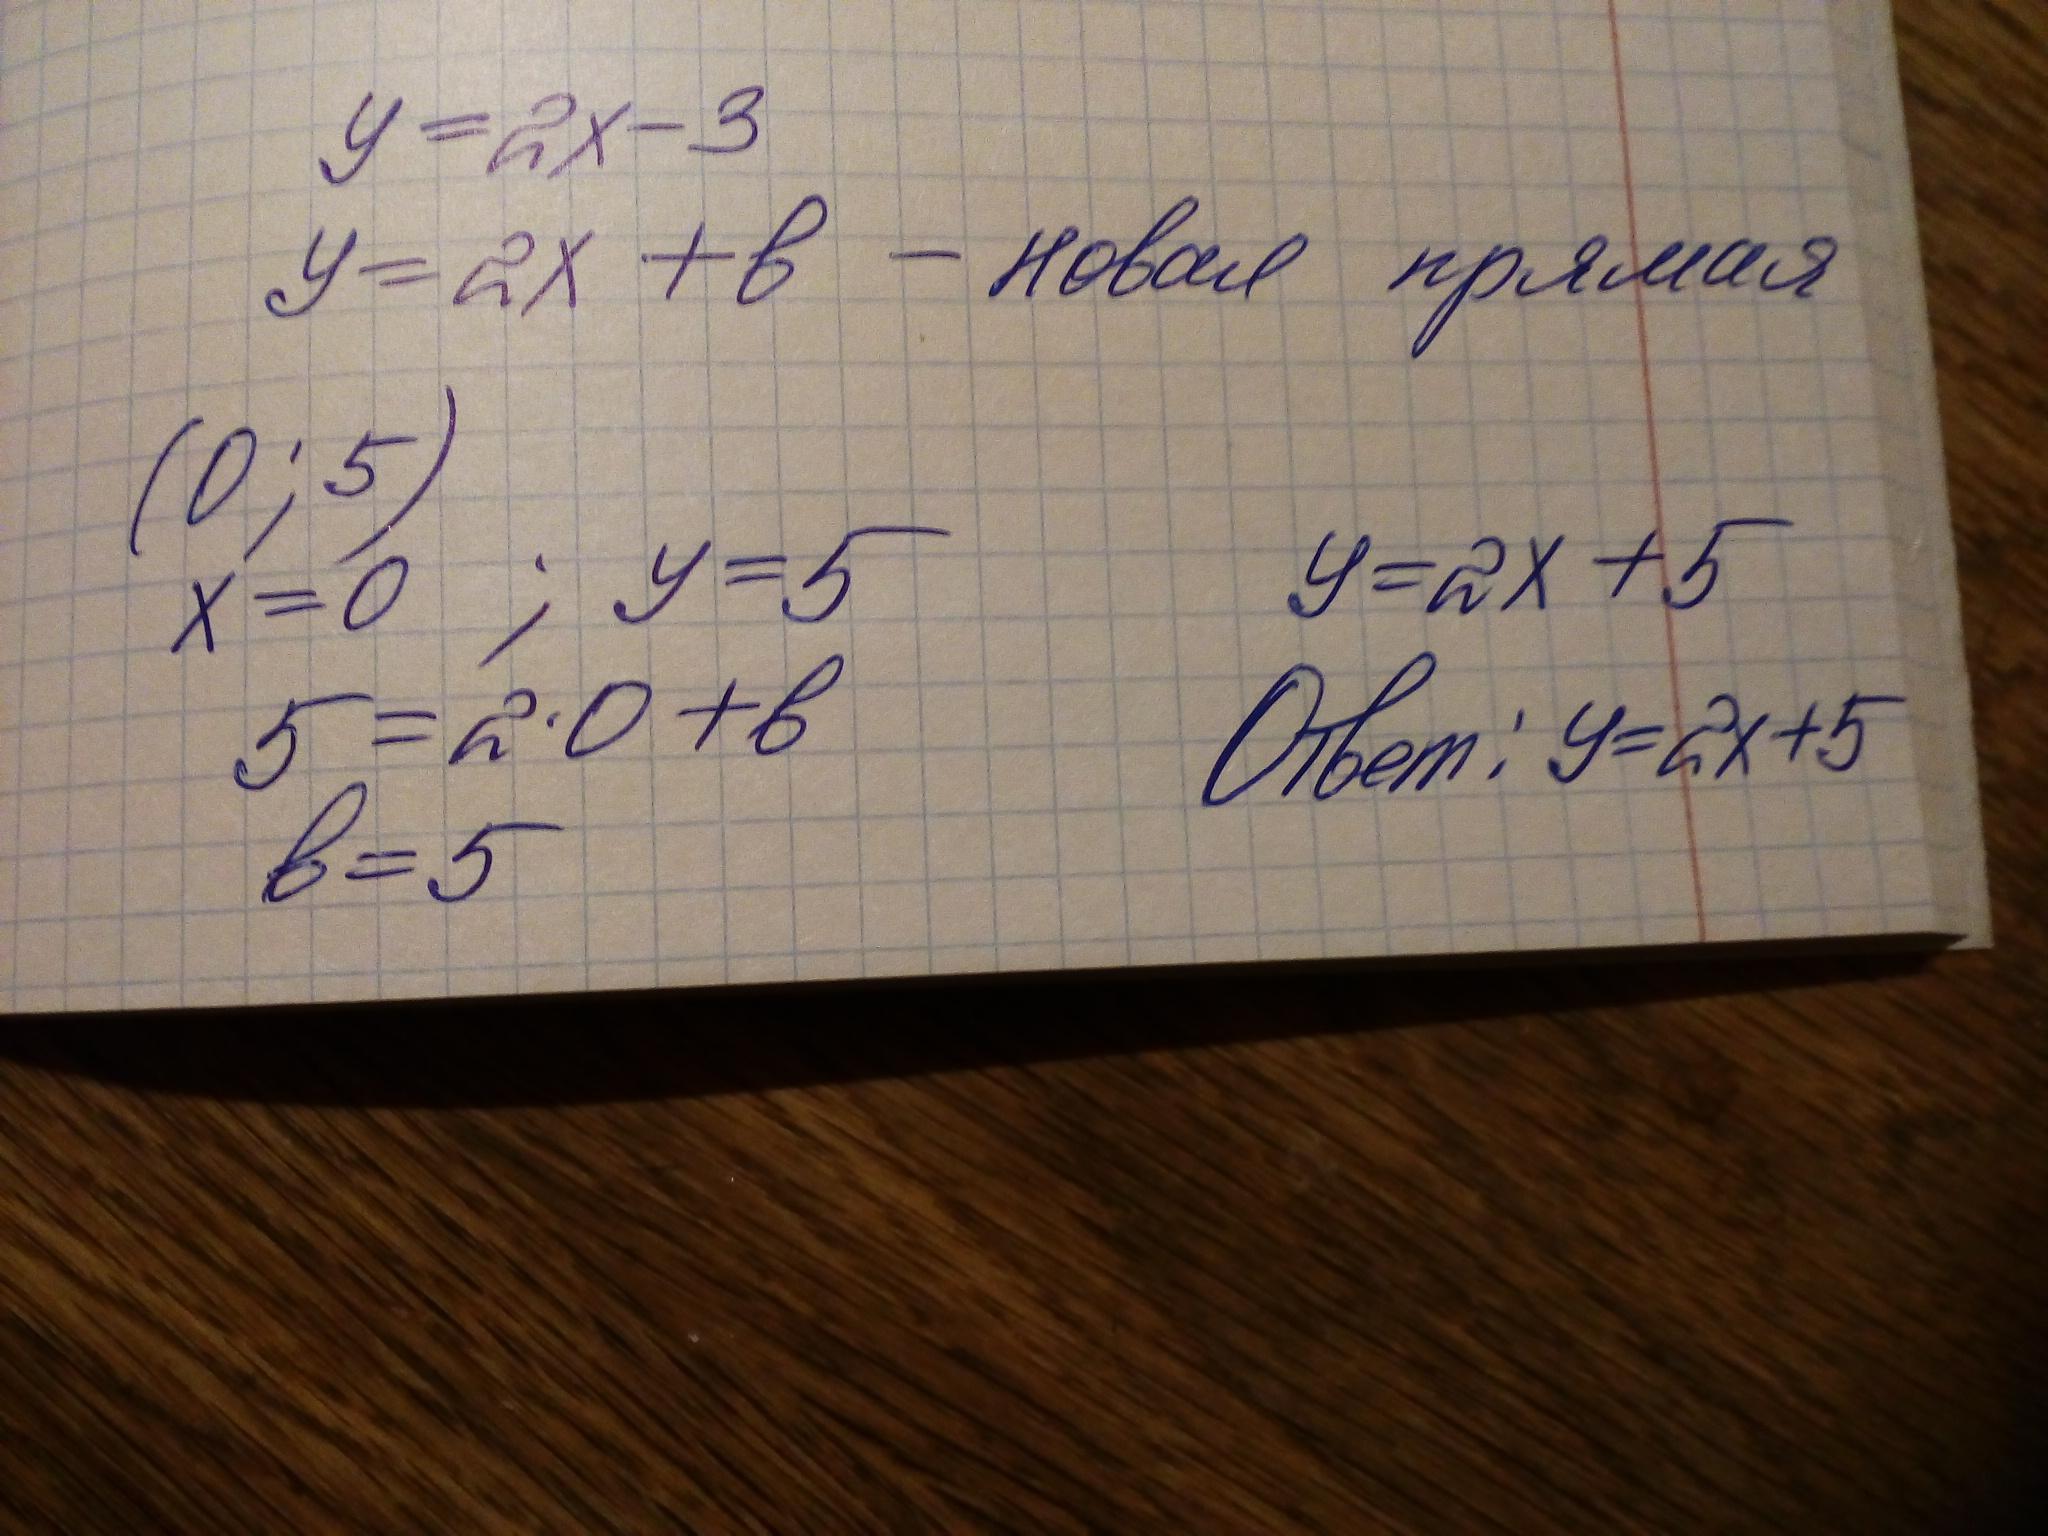 y = 2x - 3
y = 2x + в - новая прямая
(0; 5)
x = 0 ; y = 5
5 = 2·0 + в
в = 5
y = 2x + 5
Ответ: y = 2x + 5